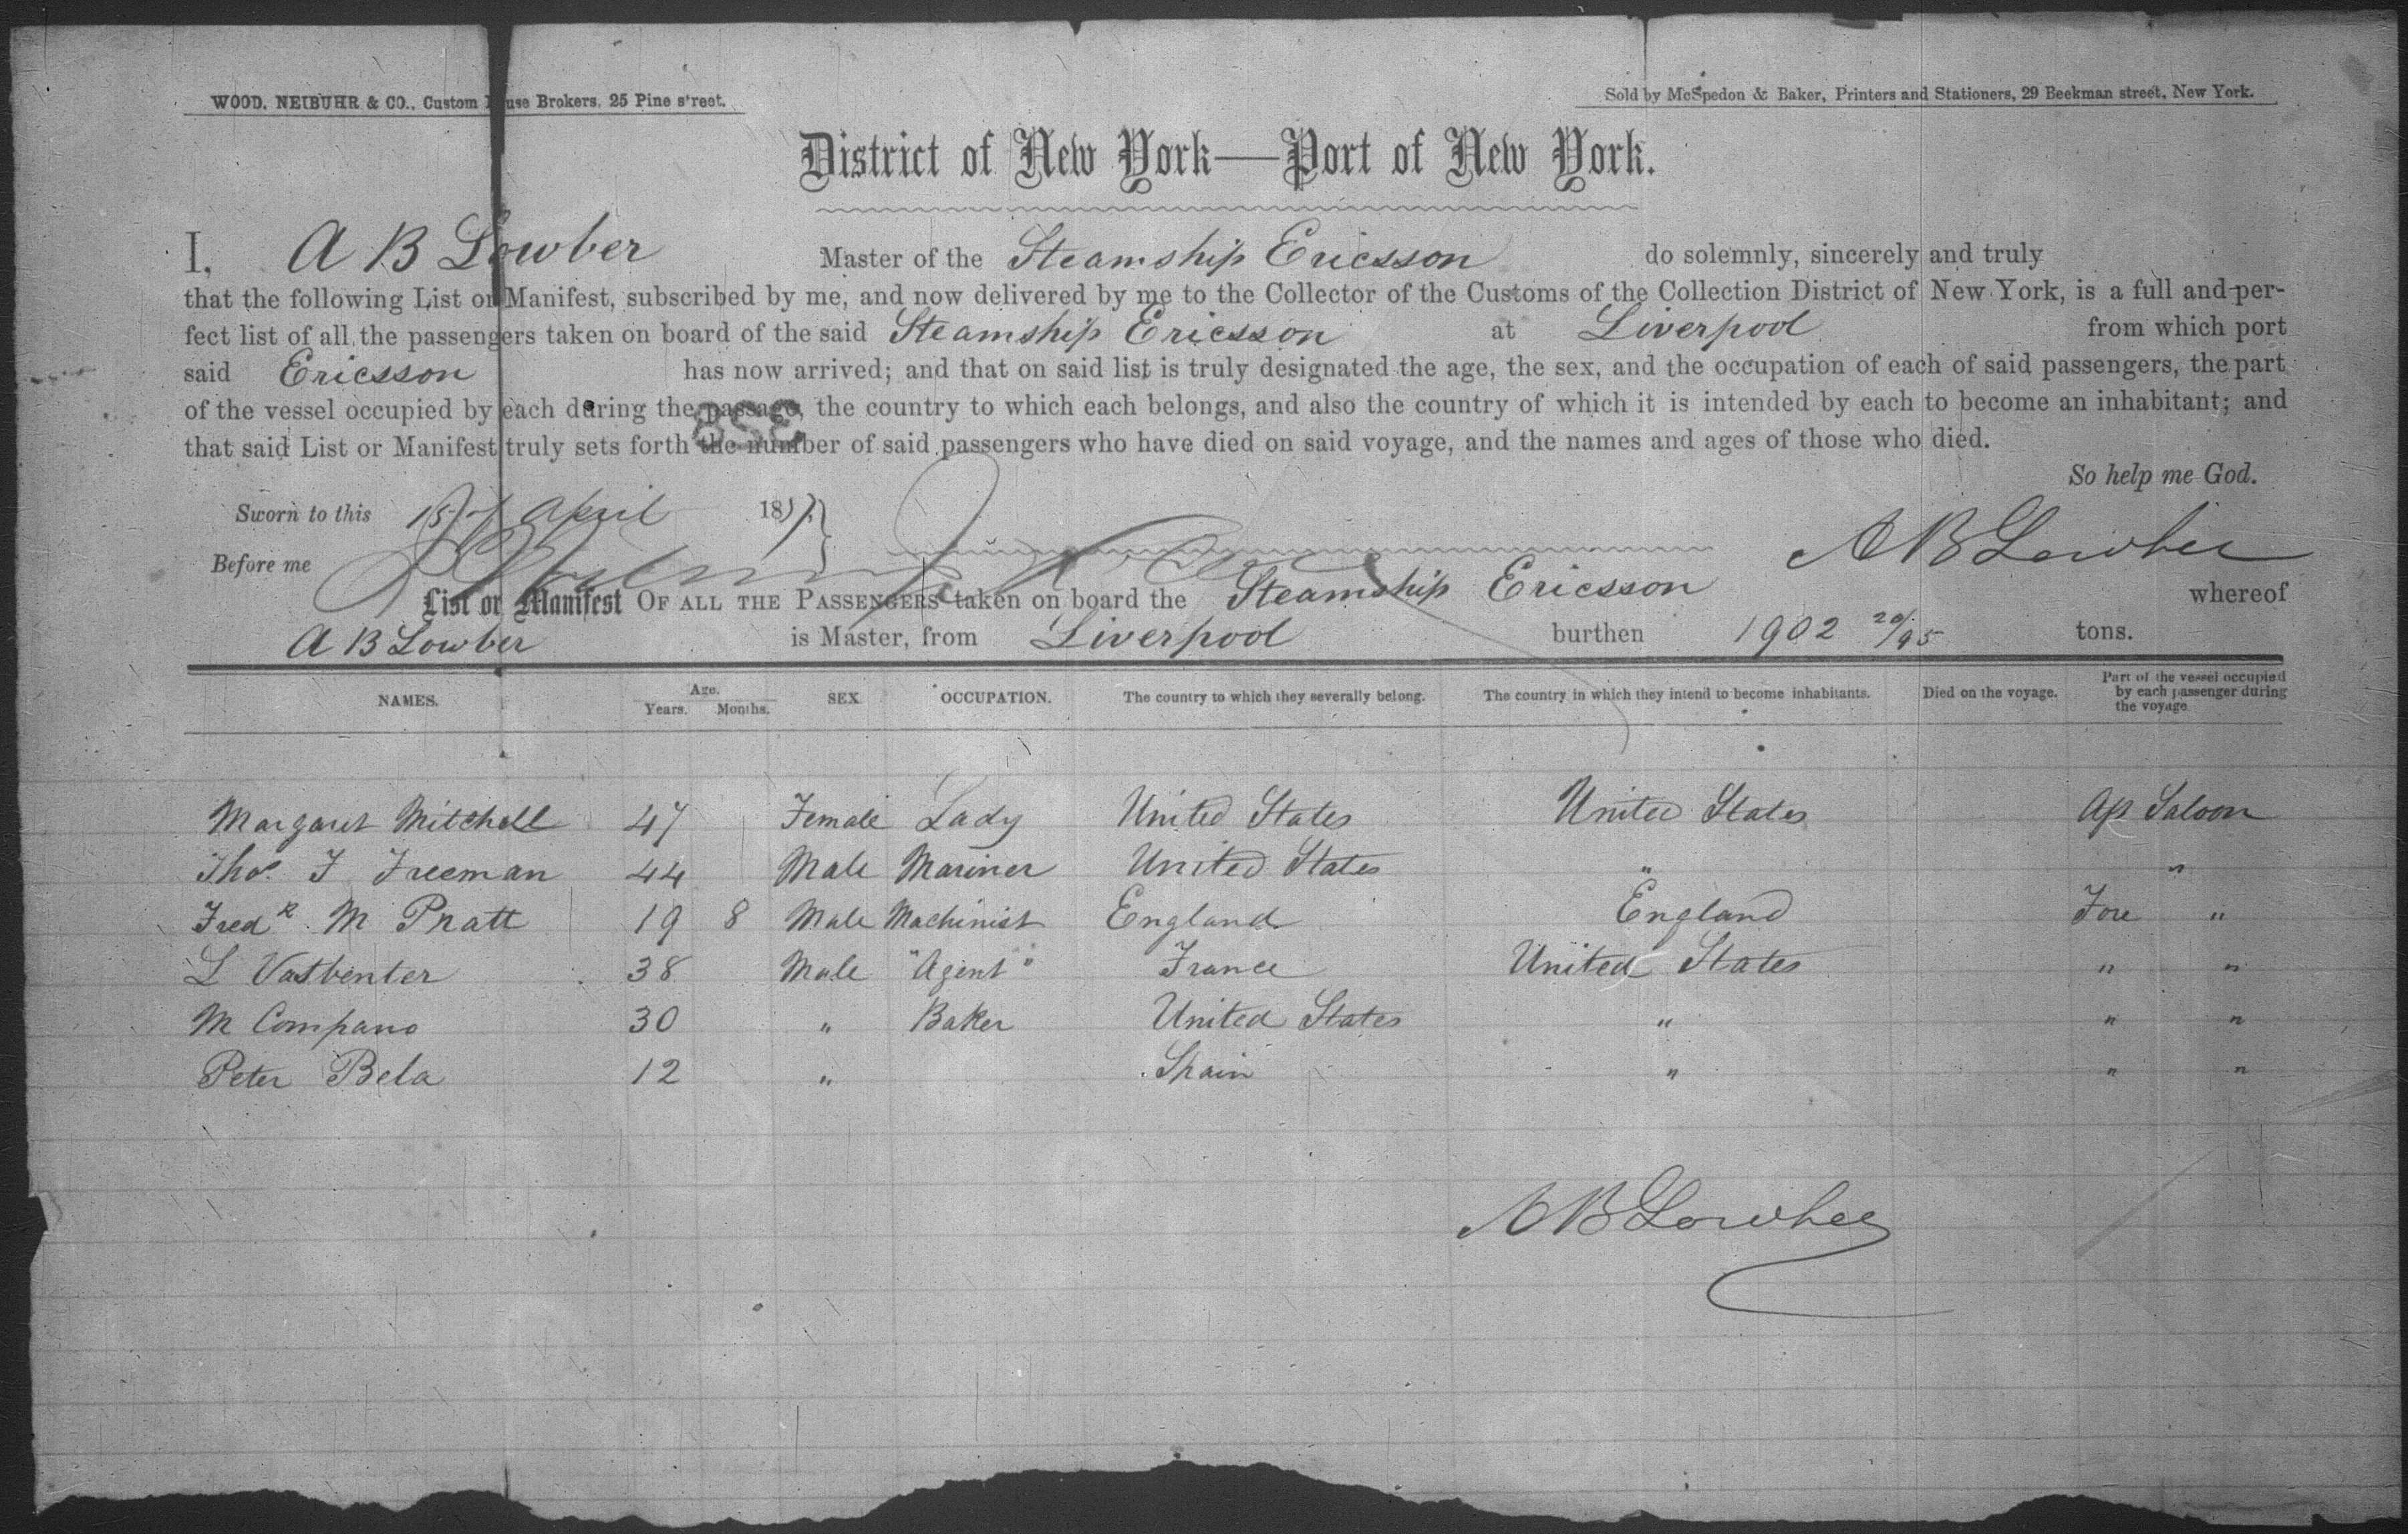 WOOD, NEIBUHR & CO., Custom House Brokers, 25 Pine street.
Sold by McSpedon & Baker, Printers and Stationers, 29 Beekman street, New York.
District of New York—Port of New York.
I, A B Lowber Master of the Steamship Ericsson do solemnly, sincerely and truly
that the following List or Manifest, subscribed by me, and now delivered by me to the Collector of the Customs of the Collection District of New York, is a full and per-
fect list of all the passengers taken on board of the said Steamship Ericsson at Liverpool from which port
said Ericsson has now arrived; and that on said list is truly designated the age, the sex, and the occupation of each of said passengers, the part
of the vessel occupied by each during the passage, the country to which each belongs, and also the country of which it is intended by each to become an inhabitant; and
358
that said List or Manifest truly sets forth the number of said passengers who have died on said voyage, and the names and ages of those who died.
So help me God.
Sworn to this 15 of April 1857
A B Lowber
Before me
List or Manifest OF ALL THE PASSENGERS taken on board the Steamship Ericsson whereof
A B Lowber is Master, from Liverpool burthen 1902 20/95 tons.
NAMES. Age. Years. Months. SEX OCCUPATION. The country to which they severally belong. The country in which they intend to become inhabitants. Died on the voyage. Part of the vessel occupied by each passenger during the voyage
Margaret Mitchell 47 Female Lady United States United States Aft Saloon
Thos. F Freeman 44 Male Mariner United States " "
Fredk. M Pratt 19 8 Male Machinist England England Fore "
L Vastbenter 38 Male "Agent" France United States " "
M Compano 30 " Baker United States " " "
Peter Bela 12 " Spain " " "
A B Lowber